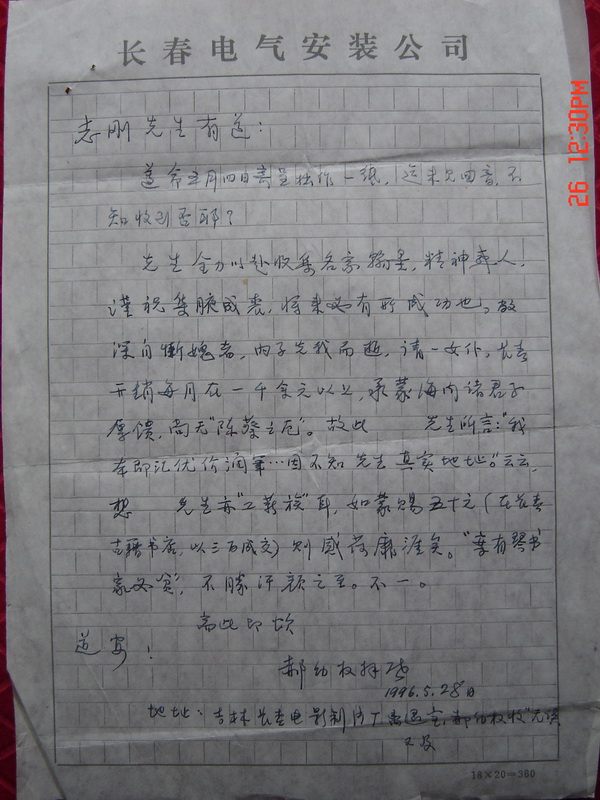 长春电气安装公司
志刚先生有道：
遵命五月四日寄呈拙作一纸，迄未见回音，不
知收到否耶？
先生全力以赴收集名家翰墨，精神葬人，
谨祝集腋成裘，将来必有所成功也。故
深自惭愧者，内子先我而逝，请一女仆，长春
开销每月在一千余元以上，承蒙海内诸君子
厚馈，尚无“陈蔡之厄”。故此 先生所言：“我
本即汇优价润笔…因不知先生真实地址。”云云，
想 先生亦“工薪族”耳，如蒙赐五十元（在长春
古籍书店，以三百成交）则感荷靡涯矣。“案有琴书
家必贫”，不胜汗颜之至。不一。
耑此即颂
道安！
郝幼权拜启
1996.5.28日
地址：吉林长春电影制片厂 郝幼权收“无误
又及
18×20=360
26 12:30PM